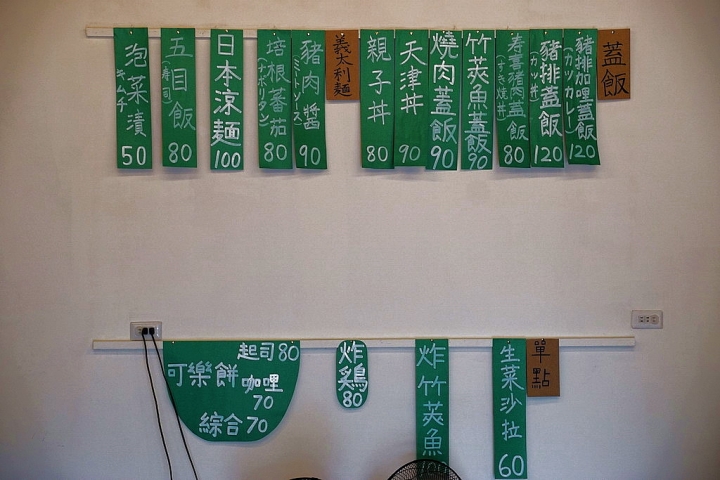 蓋飯
豬排加哩蓋飯
(カツカレー)
120
豬排蓋飯
(カツ丼)
120
壽喜豬肉蓋飯
(すき焼丼)
80
竹莢魚蓋飯
90
燒肉蓋飯
90
天津丼
90
親子丼
80
義大利麵
豬肉醬
(ミートソース)
90
培根蕃茄
(ナポリタン)
80
日本涼麵
100
五目飯
(壽司)
80
泡菜漬
キムチ
50
單點
生菜沙拉
60
炸竹莢魚
100
炸鶏
80
可樂餅
起司80
咖哩
70
綜合70